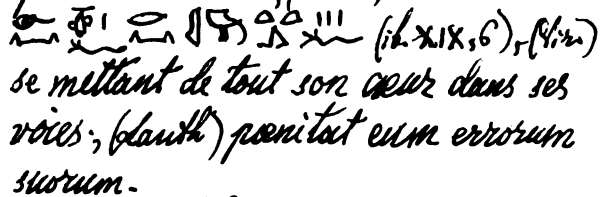 (ib. XIX, 6), (Viro)
se mettant de tout son cœur dans ses
voies; (Lauth) pœnitat eum errorum
suorum.